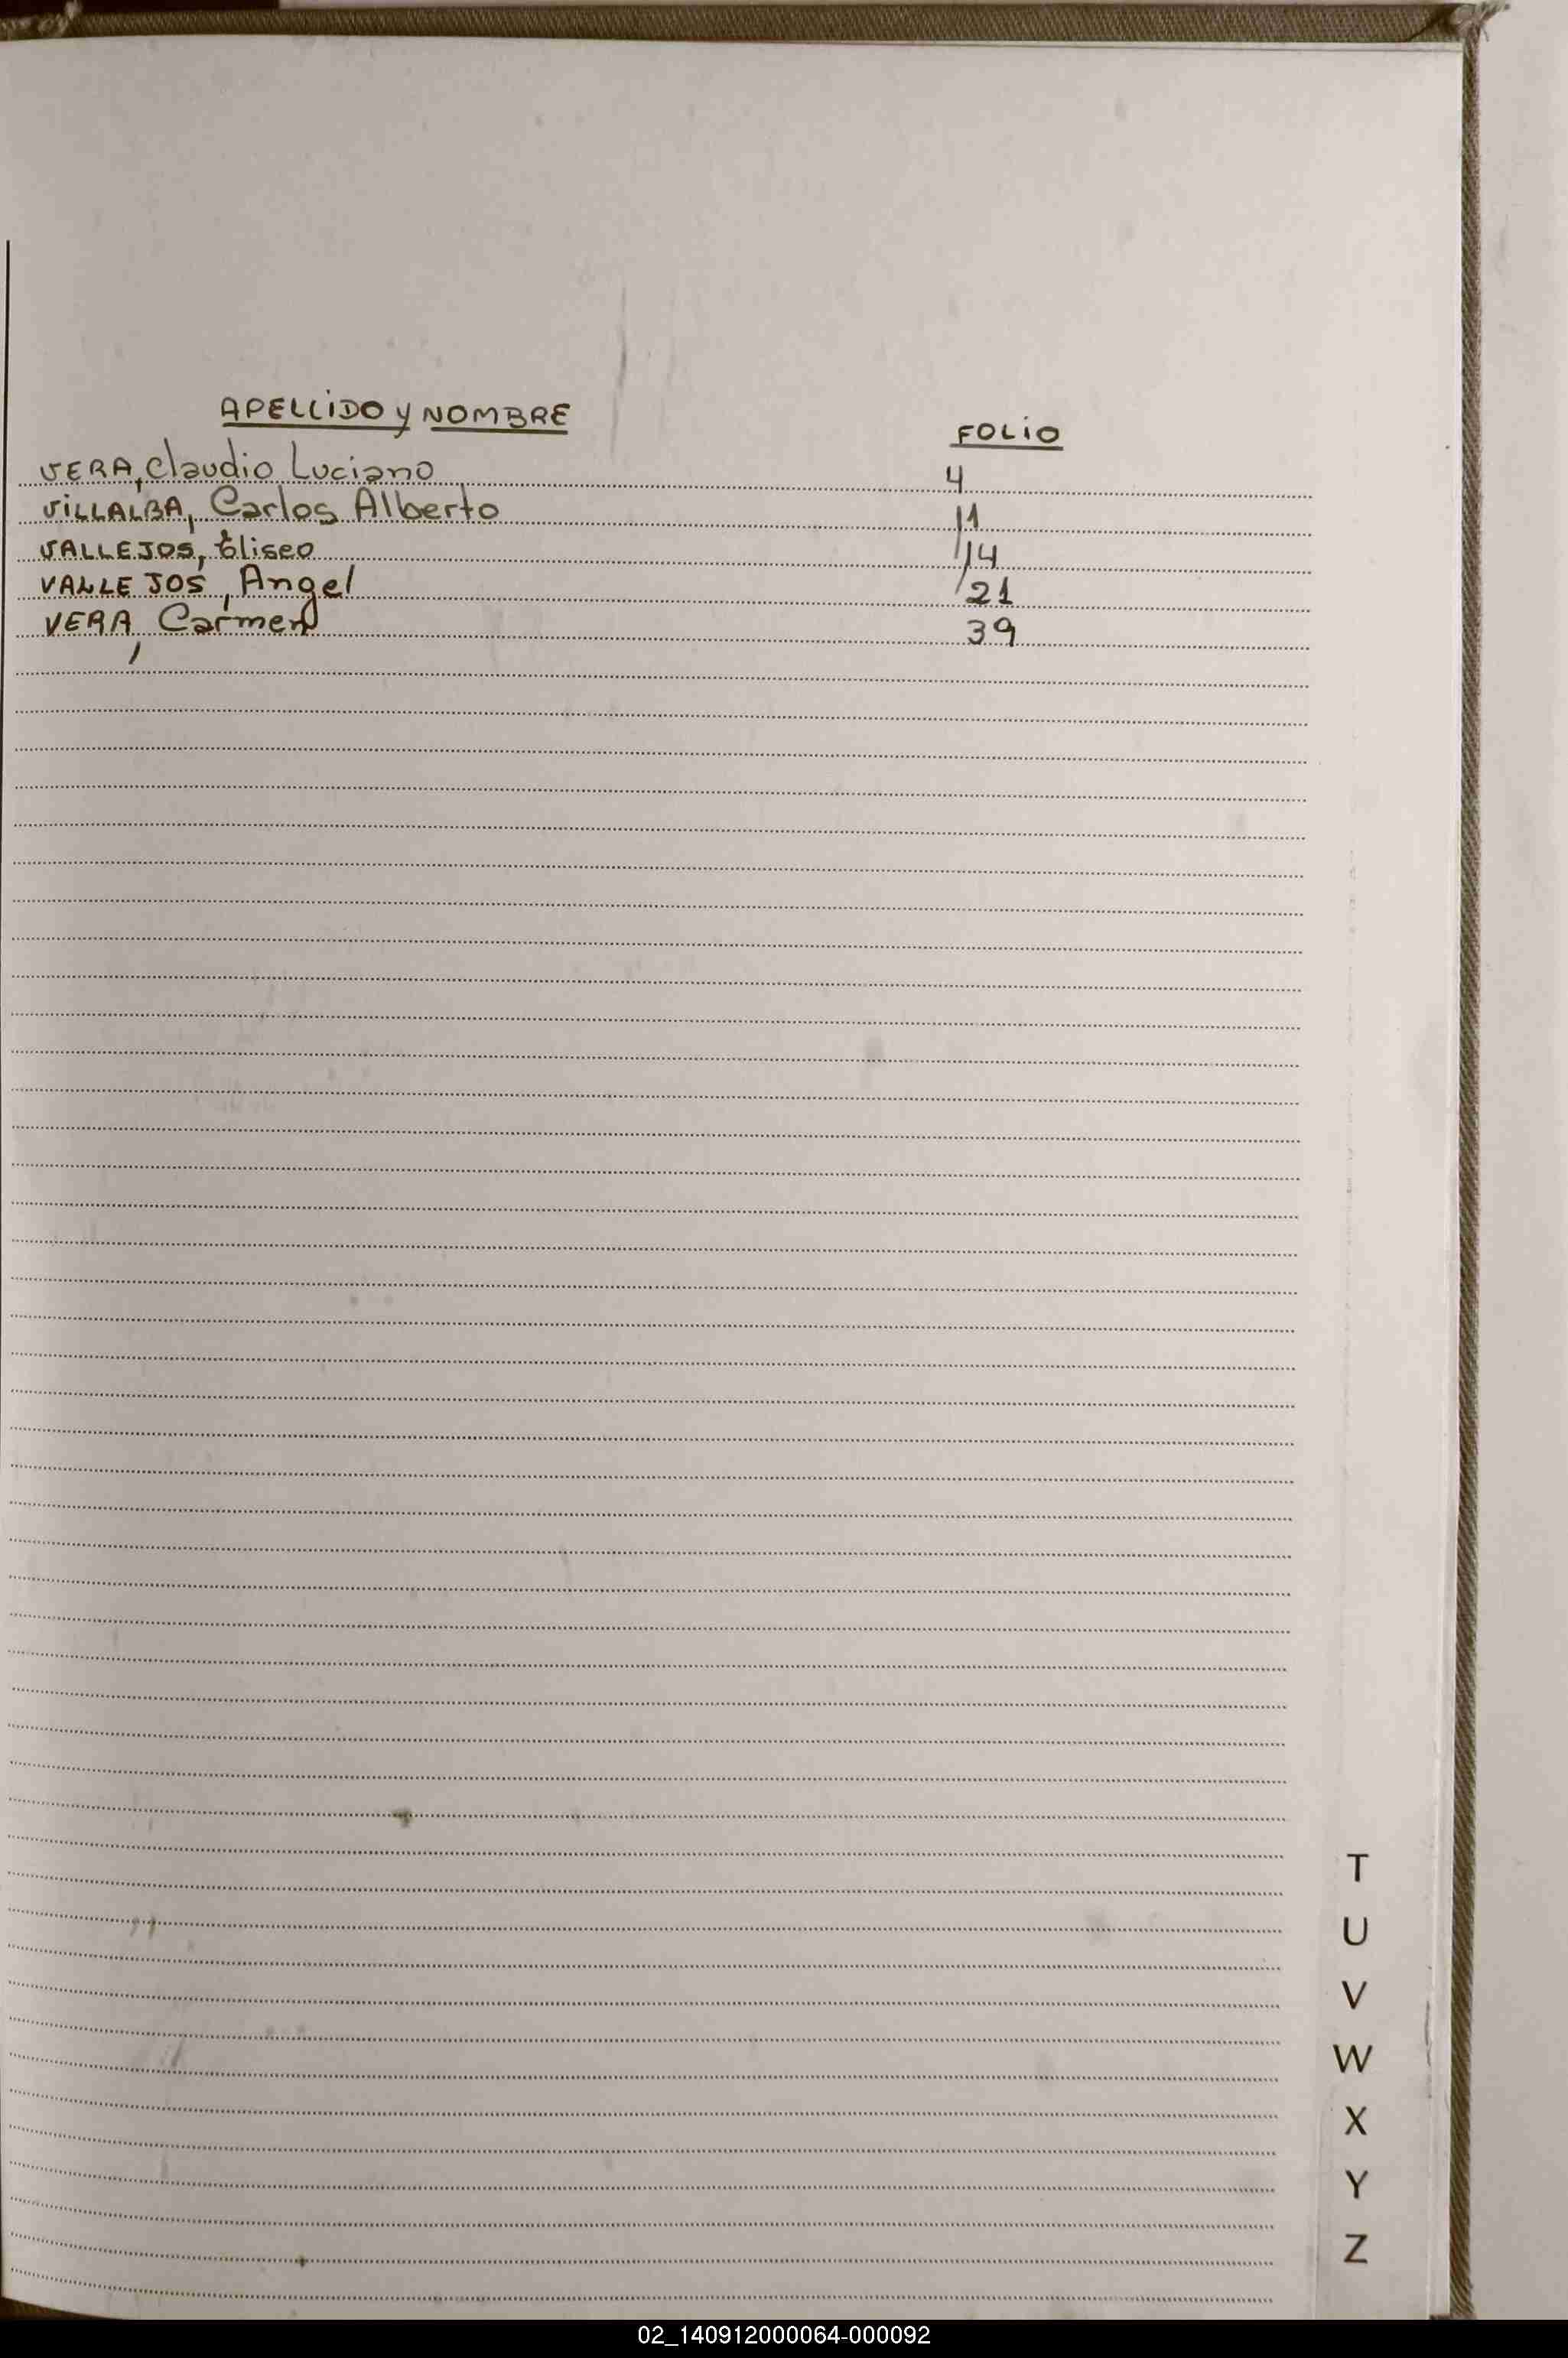 APELLIDO y NOMBRE FOLIO
VERA, Claudio Luciano 4
VILLALBA, Carlos Alberto 11
VALLEJOS, Eliseo 14
VALLEJOS, Angel 21
VERA, Carmen 39
T
U
V
W
X
Y
Z
02_140912000064-000092